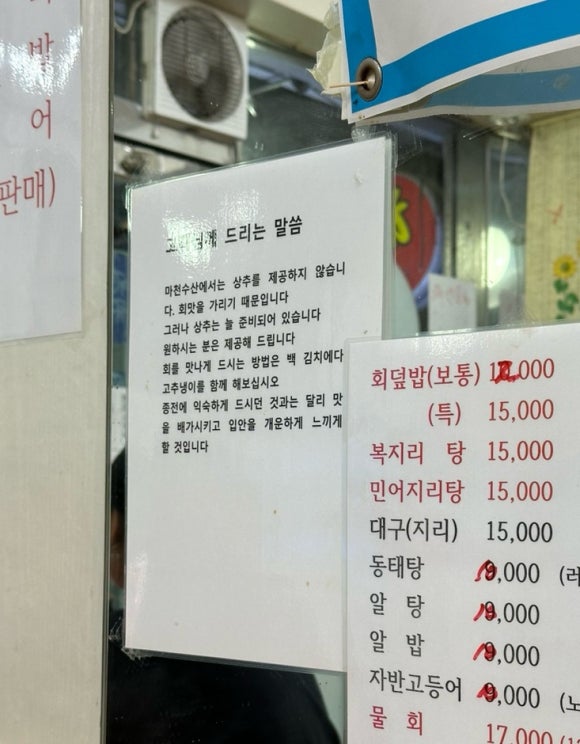 밥
어
판매)
고객님께 드리는 말씀
마천수산에서는 상추를 제공하지 않습니
다. 회맛을 가리기 때문입니다
그러나 상추는 늘 준비되어 있습니다
원하시는 분은 제공해 드립니다
회를 맛나게 드시는 방법은 백 김치에다
고추냉이를 함께 해보십시오
종전에 익숙하게 드시던 것과는 달리 맛
을 배가시키고 입안을 개운하게 느끼게
할 것입니다
회덮밥(보통)
(특) 15,000
복지리 탕 15,000
민어지리탕 15,000
대구(지리) 15,000
동태탕 9,000
알 탕 9,000
알 밥 9,000
자반고등어 9,000
물 회 17,000